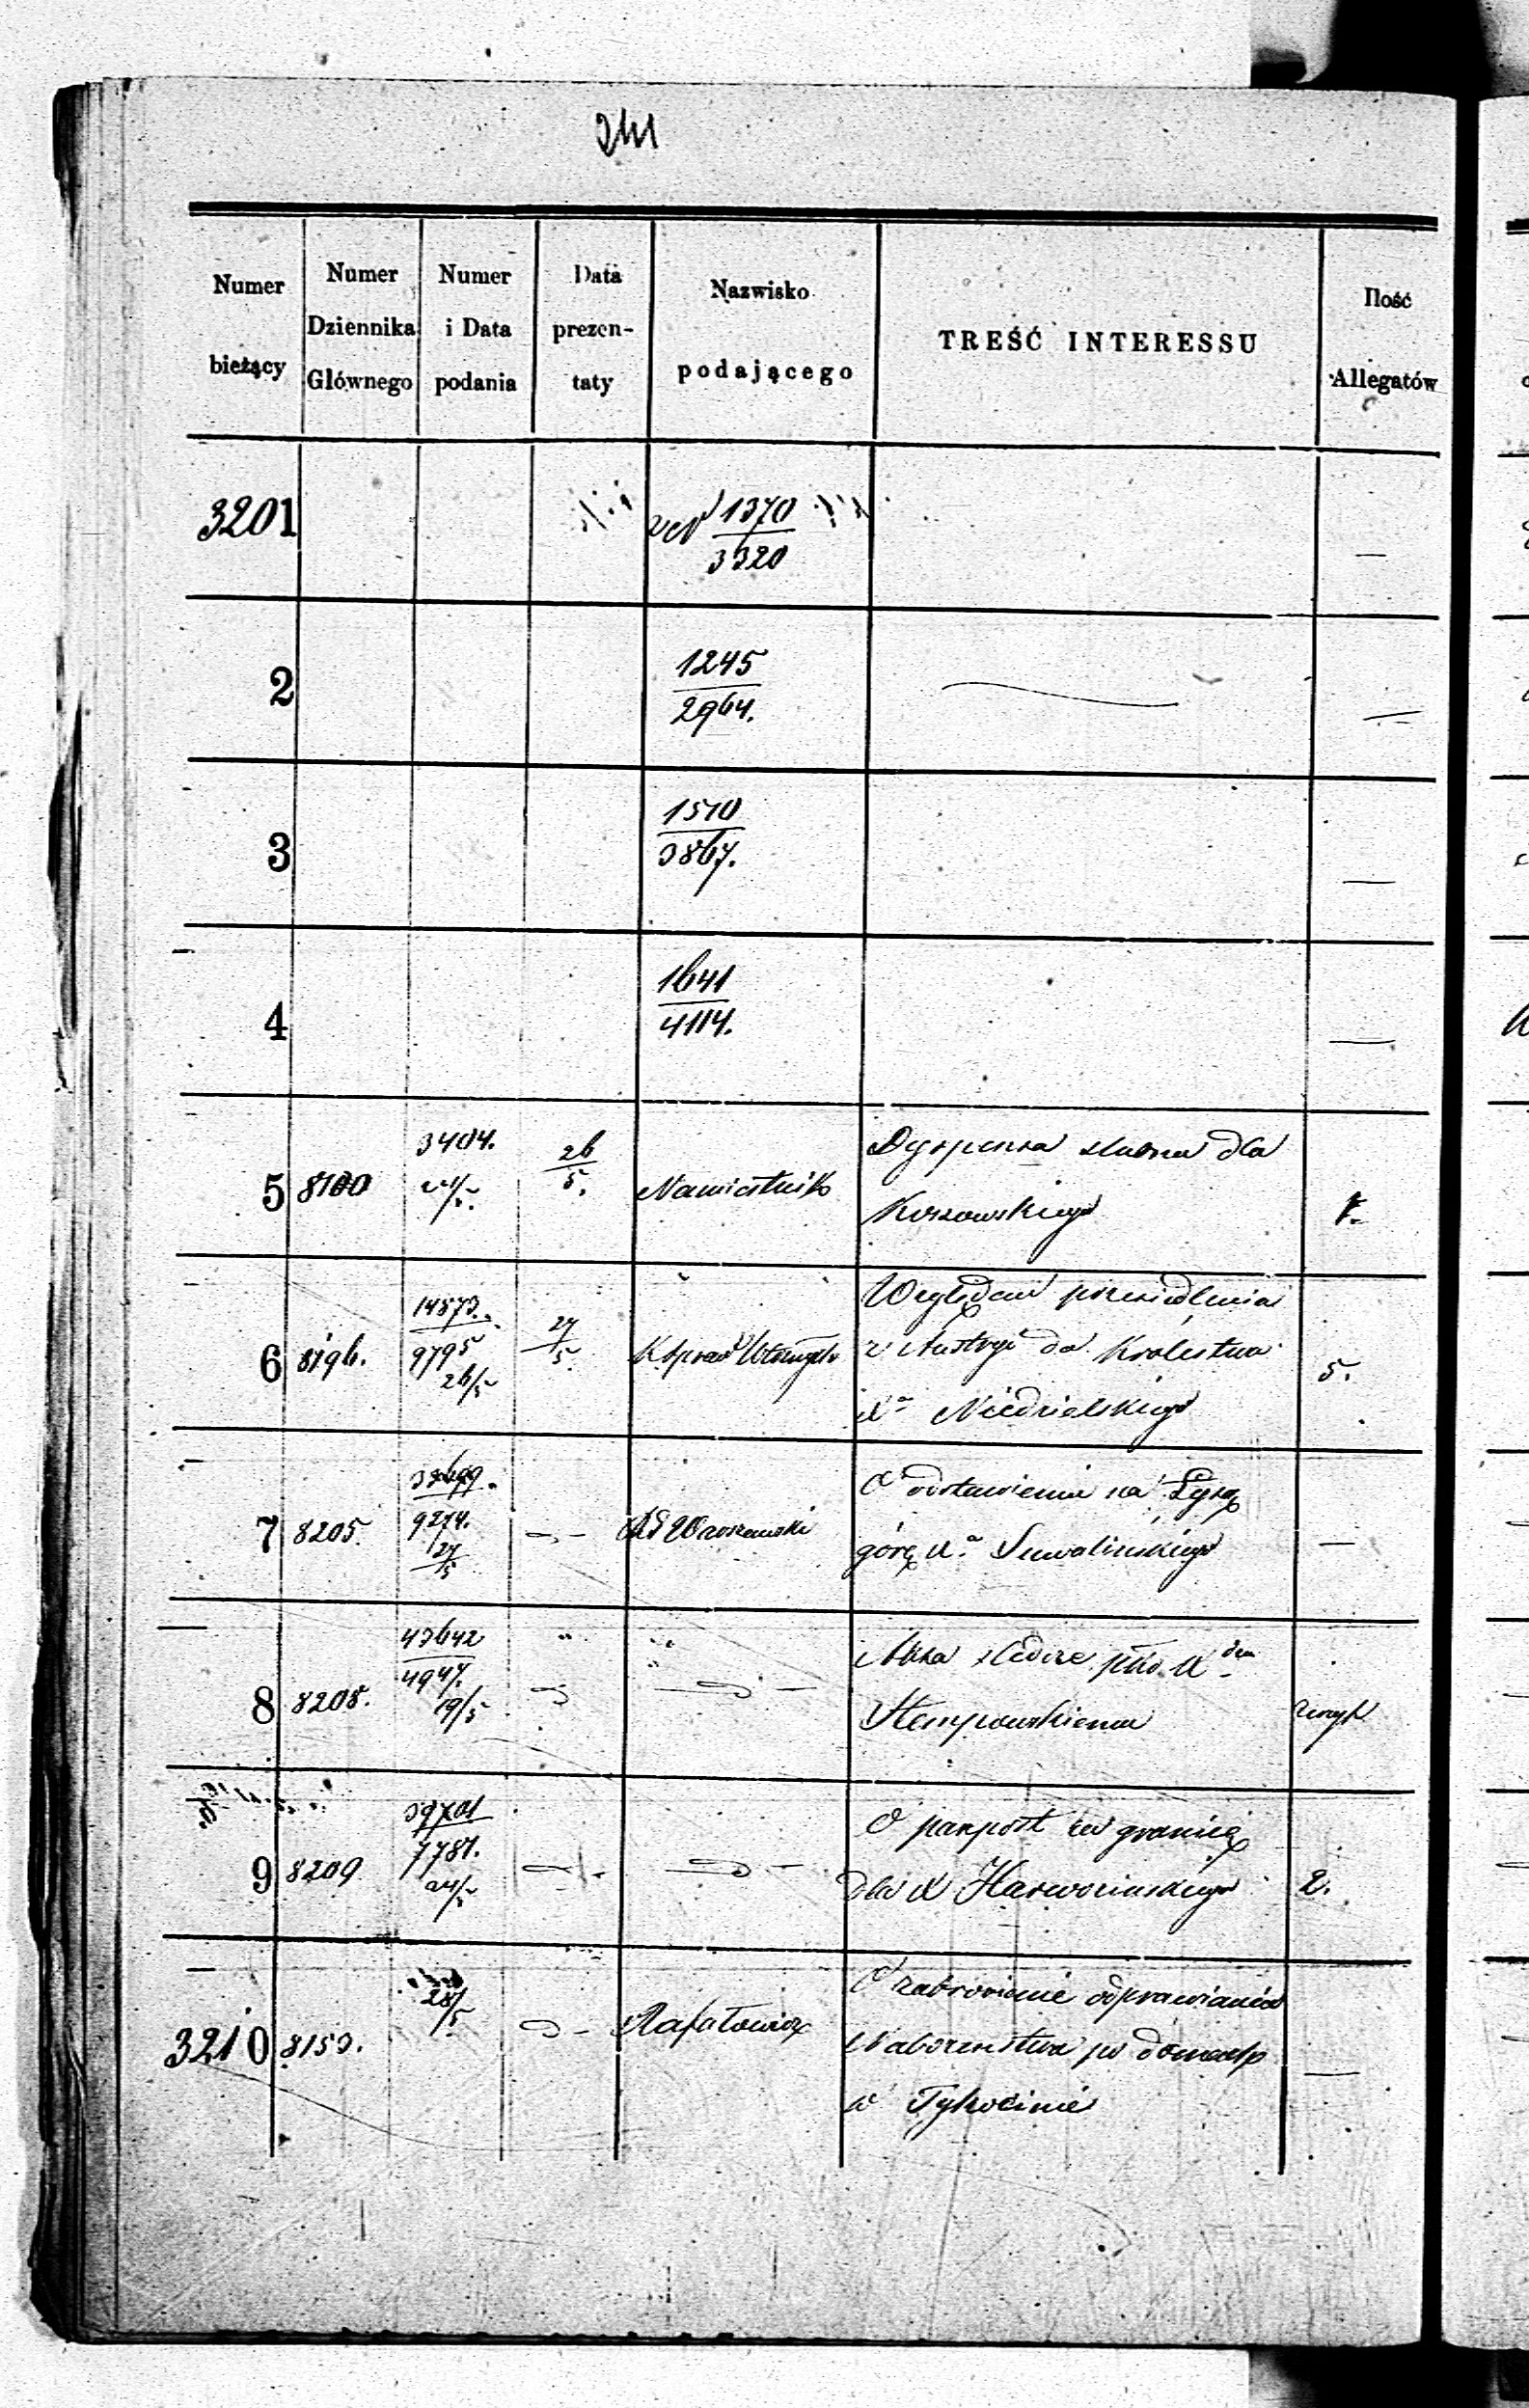 241
Numer bieżący | Numer Dziennika Głównego | Numer i Data podania | Data prezentaty | Nazwisko podającego | TREŚĆ INTERESSU | Ilość Allegatów
3201 | 1370/3320 | —
2 | 1245/2964. | —
3 | 1510/3867. | —
4 | 1641/4114. | —
5 | 8100 | 3404. | 26/5. | Namiestnik | Dyspensa ślubna dla
Kossowskiego | 1.
6 | 8196. | 14573./9795 26/5 | 27/5. | Względem przesiedlenia
z Austryi do Królestwa
Xa Niedzielskiego | 5.
7 | 8205. | 9274. 27/5 | Warszawski | O odstawienie na Łysą
górę Xa Suwalinskiego | —
8 | 8208. | 43642/4947. 19/5 | Akta śledcze pko X dem
Stempowskiemu | zszyt
9 | 8209 | 39701/7781. 24/5 | O paszport za granicę
dla X Harwozinskiego | 2.
3210 | 8153. | 28/5 | Rafałowicz | O zabronienie odprawiania
Nabożeństwa po domach
w Tykocinie | —